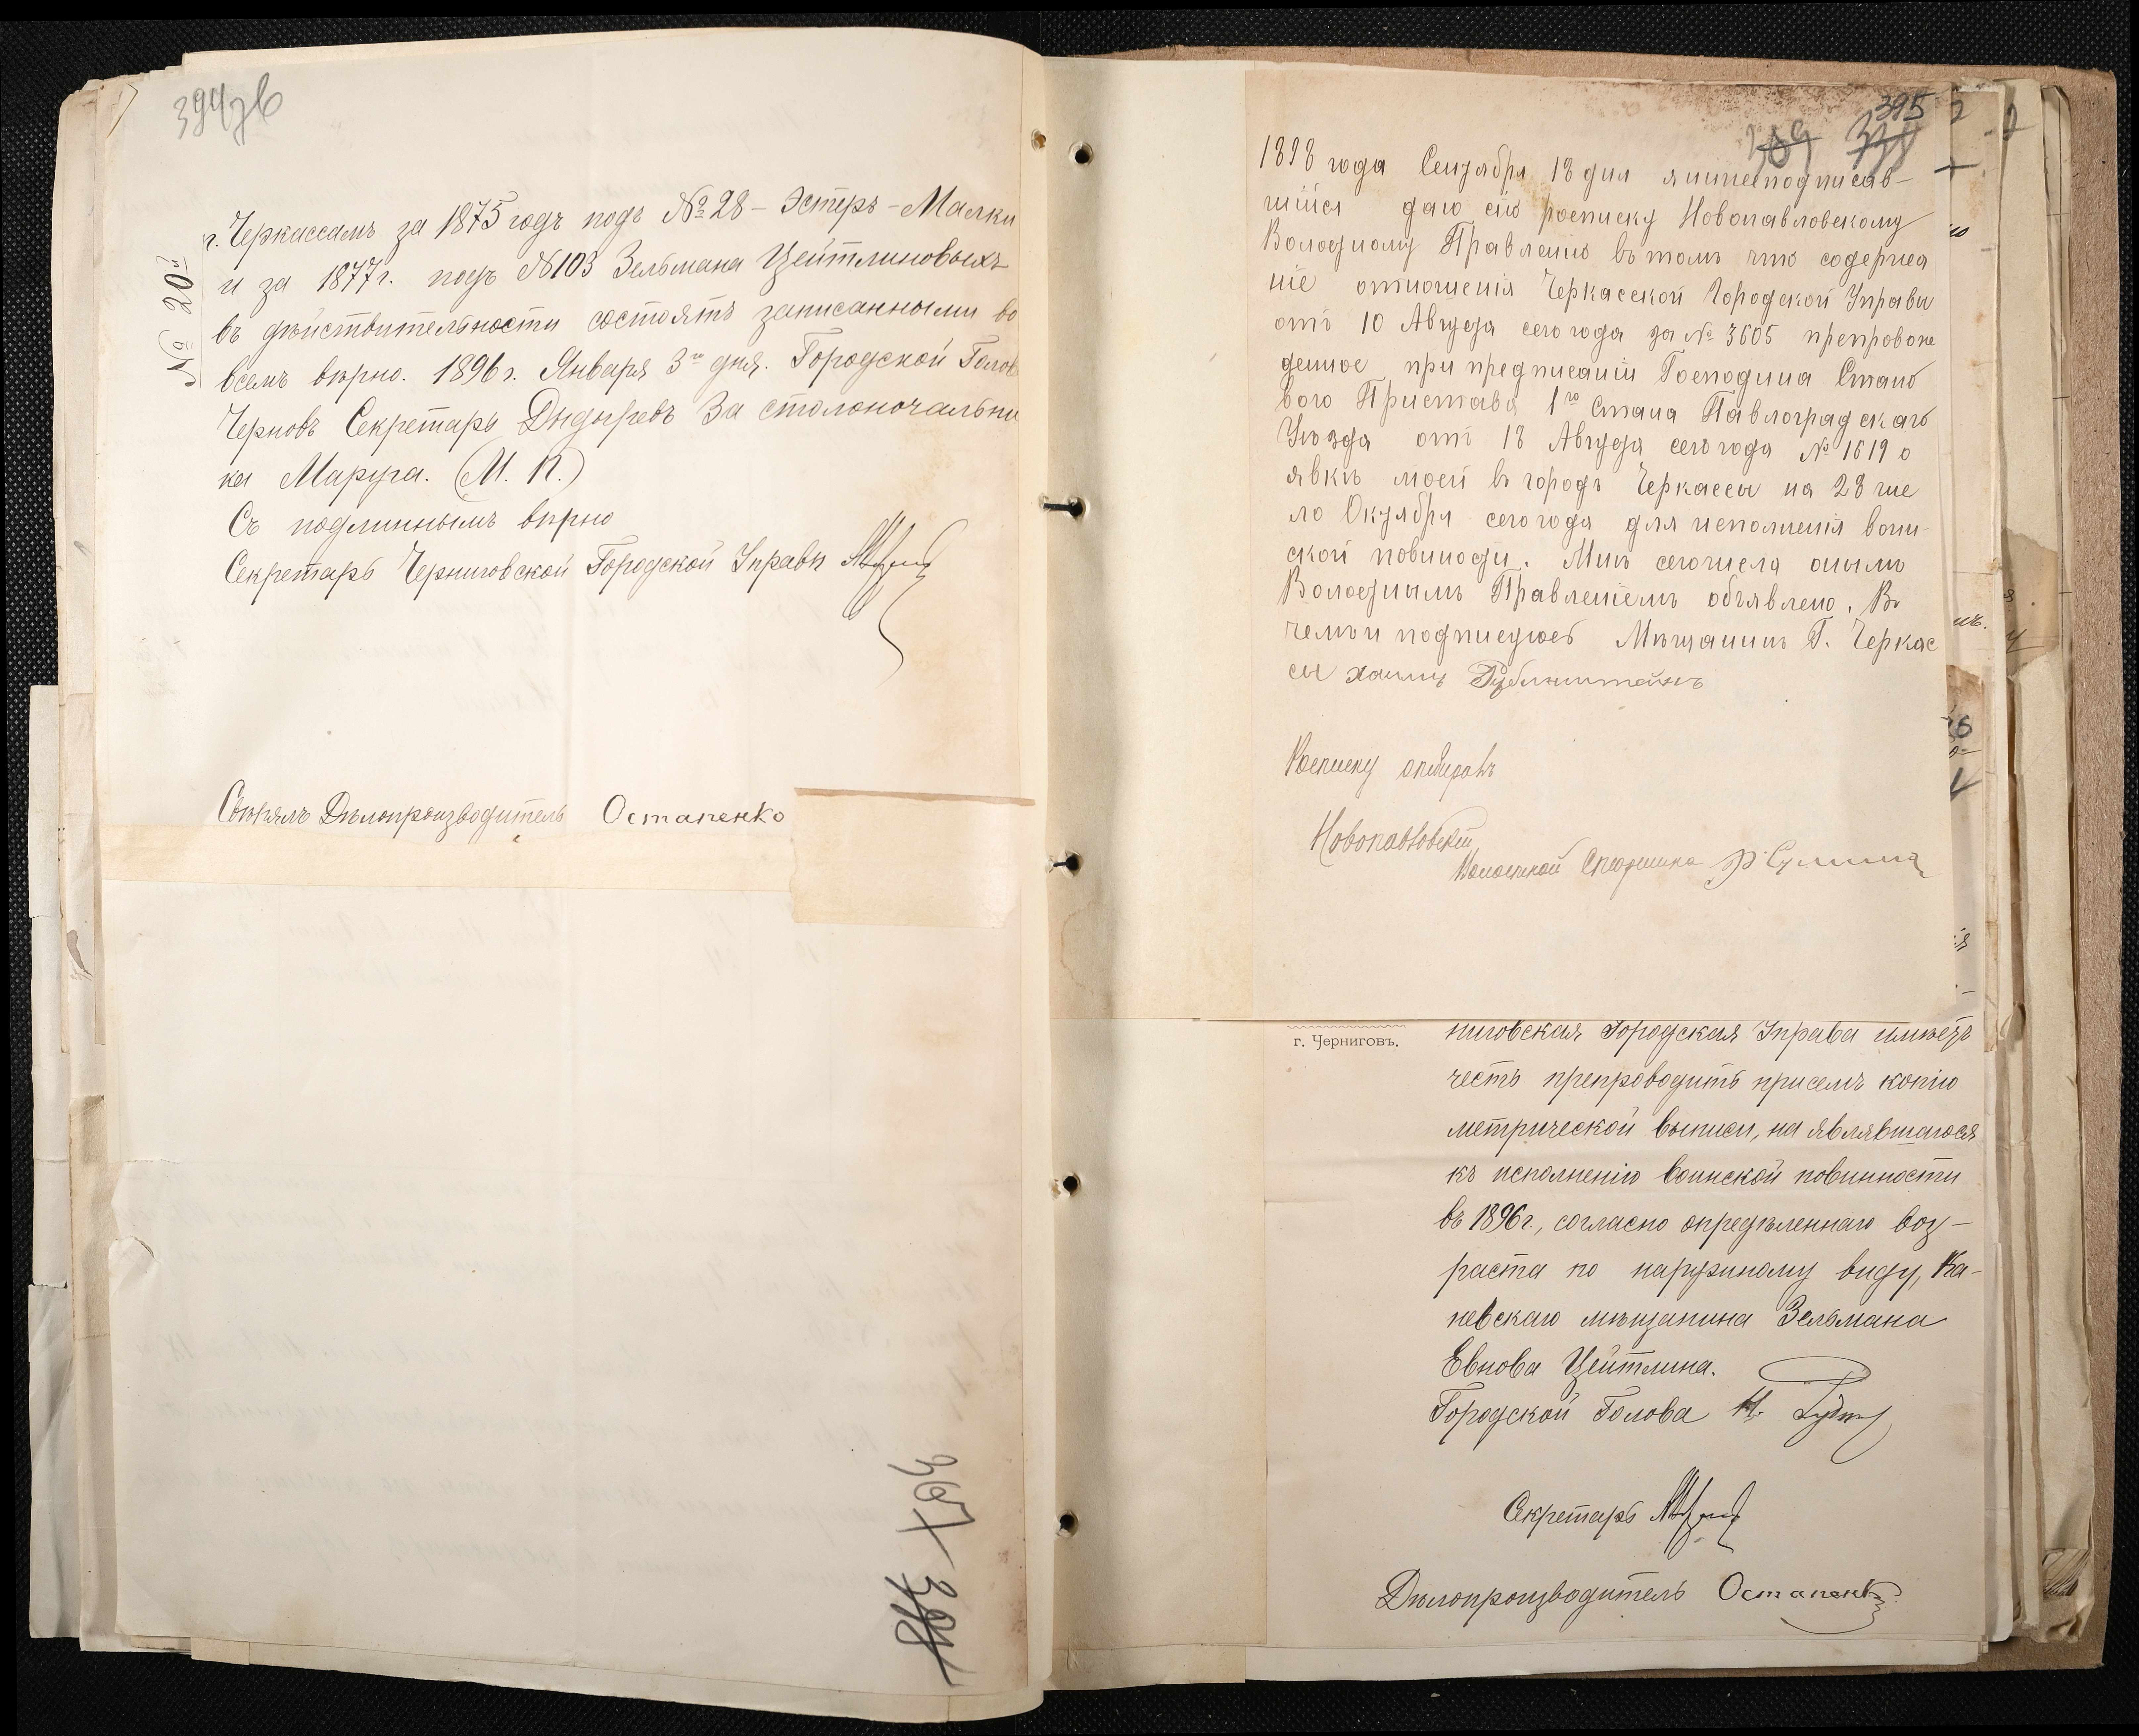 394 об
№ 20й
г. Черкассамъ за 1875 годъ подъ № 28 – Эстеръ-Малки
и за 1877 г. подъ № 103 Зельмана Цейтлиновыхъ
въ дѣйствительности состоятъ записанными во
всемъ вѣрно. 1896 г. Января 3го дня. Городской Голов
Черновъ Секретарь Дыдыревъ За столоночальни
ка Маруга. (М. П.)
Съ подлиннымъ вѣрно
Секретарь Черниговской Городской Управы
Свѣрялъ Дѣлопроизводитель Остапенко
395
369 338
1898 года Сентября 18 дня я нижеподписав-
шійся даю сію росписку Новопавловскому
Волостному Правленію въ томъ что содержа
ніе отношенія Черкасской Городской Управы
отъ 10 Августа сего года за № 3605 препровож
денное при предписаніи Господина Стано
вого Пристава 1го Стана Павлоградскаго
Уѣзда отъ 18 Августа сего года № 1619 о
явкѣ моей въ городъ Черкассы на 28 чис
ло Октября сего года для исполненія воин-
ской повиности. Мнѣ сего числа онымъ
Волостнымъ Правленіемъ объявлено. Въ
чемъ и подписуюсь Мѣщанинъ Г. Черкас
сы Хаимъ Рубинштейнъ
Росписку отбиралъ
Новопавловскій
Волостной Старшина
г. Черниговъ.
ниговская Городская Управа имѣетъ
честь препроводить присемъ копію
метрической выписи, на являвшагося
къ исполненію воинской повинности
въ 1896 г., согласно опредѣленнаго воз-
раста по наружному виду, Ка-
невскаго мѣщанина Зельмана
Евнова Цейтлина.
Городской Голова
Секретарь
Дѣлопроизводитель Остапенко